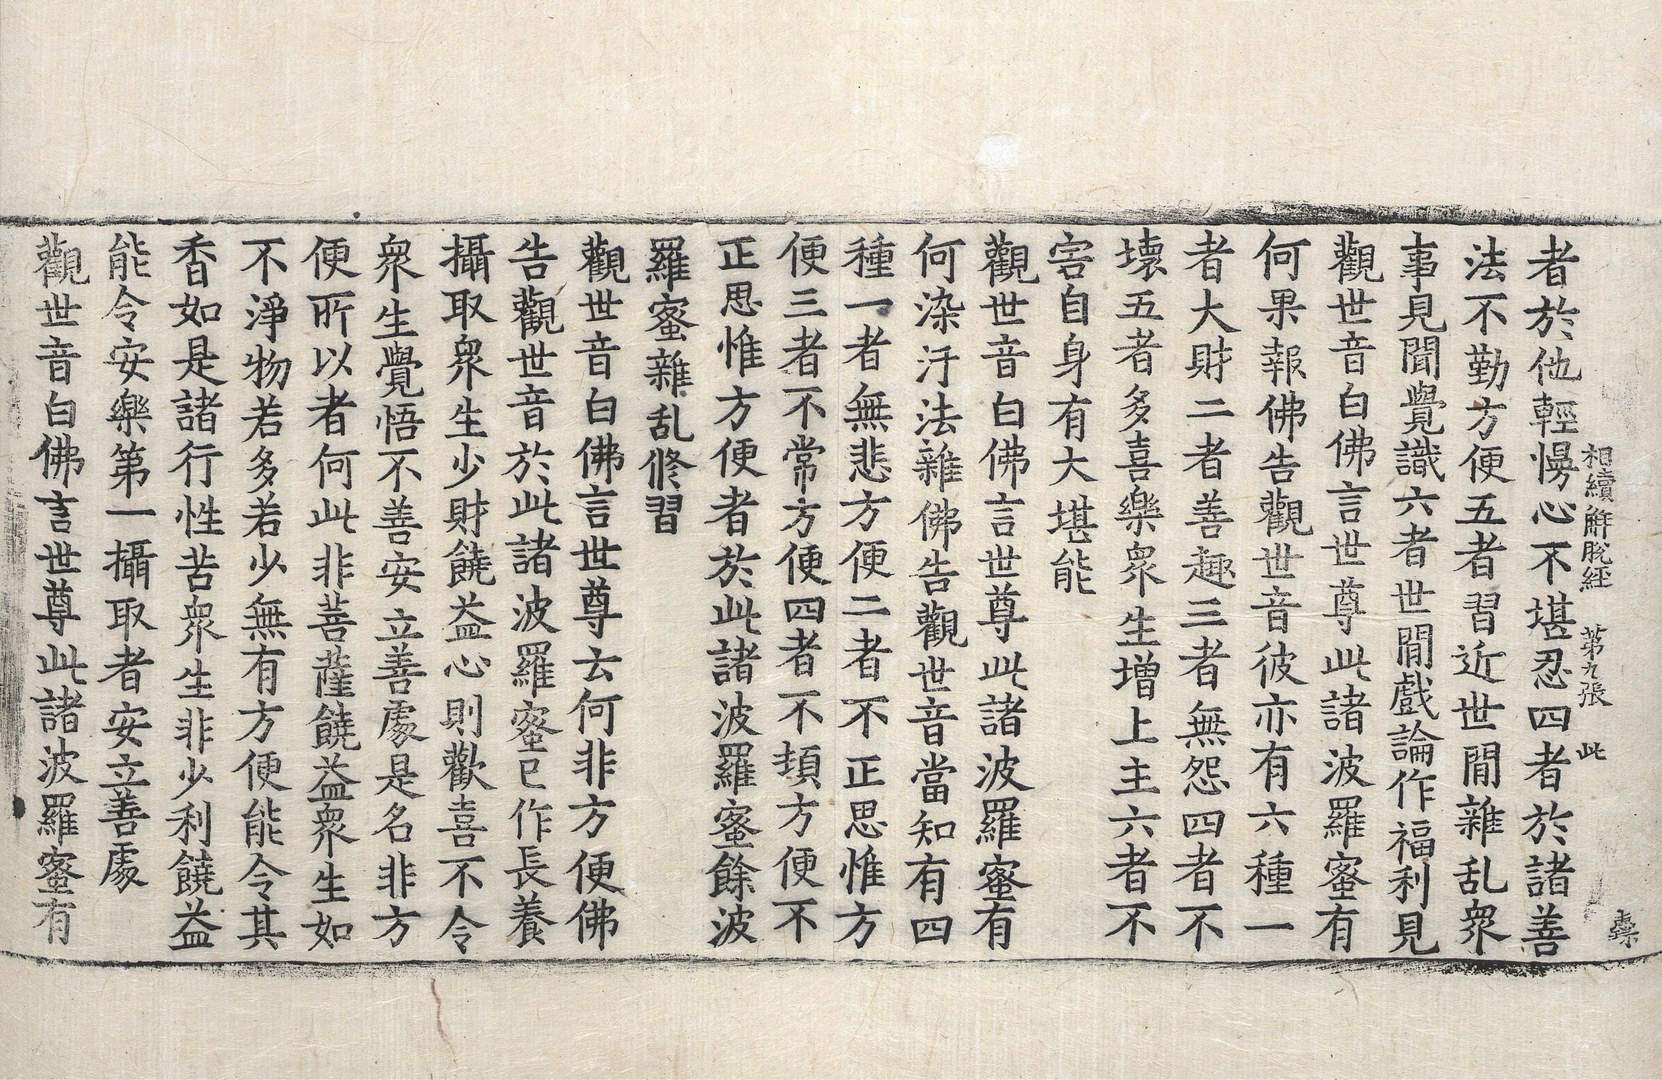 相續解脫經 第九張 此
者於他輕慢心不堪忍四者於諸善
法不勤方便五者習近世閒雜乱衆
事見聞覺識六者世閒戲論作福利見
觀世音白佛言世尊此諸波羅蜜有
何果報佛告觀世音彼亦有六種一
者大財二者善趣三者無怨四者不
壞五者多喜樂衆生增上主六者不
害自身有大堪能
觀世音白佛言世尊此諸波羅蜜有
何染汙法雜佛告觀世音當知有四
種一者無悲方便二者不正思惟方
便三者不常方便四者不頓方便不
正思惟方便者於此諸波羅蜜餘波
羅蜜雜乱修習
觀世音白佛言世尊云何非方便佛
告觀世音於此諸波羅蜜已作長養
攝取衆生少財饒益心則歡喜不令
衆生覺悟不善安立善處是名非方
便所以者何此非菩薩饒益衆生如
不淨物若多若少無有方便能令其
香如是諸行性苦衆生非少利饒益
能令安樂第一攝取者安立善處
觀世音白佛言世尊此諸波羅蜜有